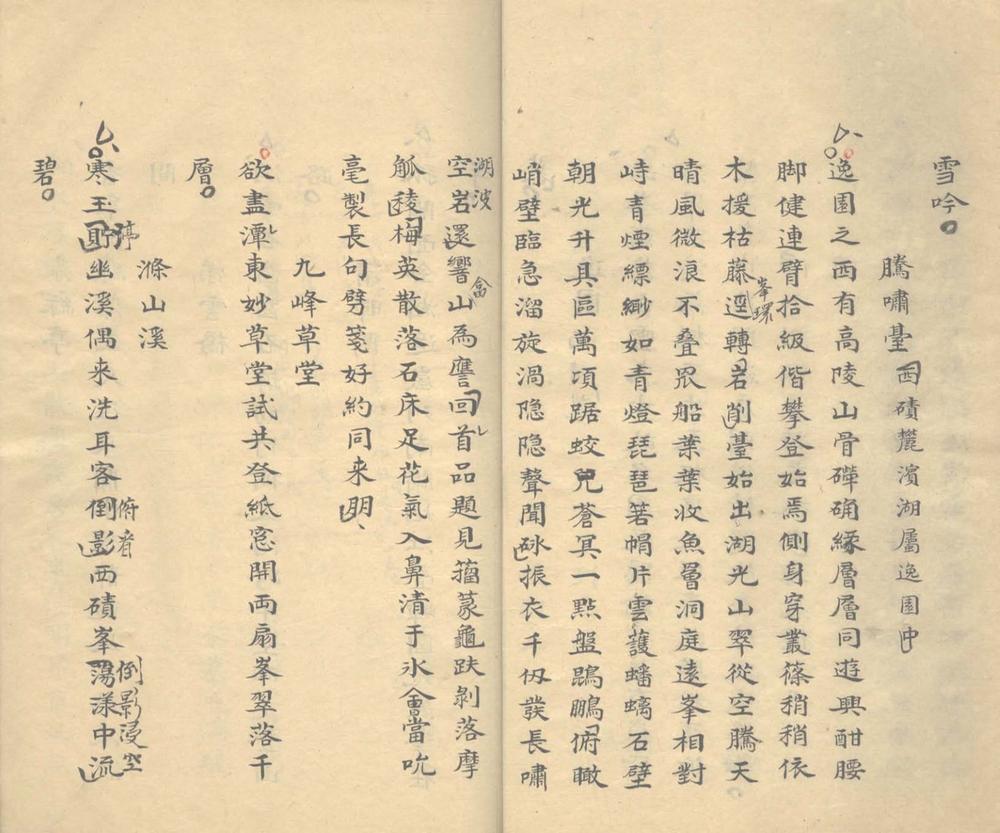 雪吟
騰嘯臺西磧麓濱湖屬逸園中
逸園之西有高陵山骨磾确緣層層同遊興酣腰
脚健連臂拾級偕攀登始焉側身穿叢篠稍稍依
木援枯藤逕轉岩削臺始出湖光山翠從空騰天
峯環
晴風微浪不叠眾船葉葉收魚罾洞庭遠峯相對
峙青煙縹緲如青燈琵琶箬帽片雲護蟠螭石壁
朝光升具區萬項踞蛟兕蒼冥一點盤鵾鵬俯瞰
峭壁臨急溜旋渦隐隐聲聞砯振衣千仭發長嘯
湖波
空岩還響山為譍回首品題見籀篆龜趺剝落摩
畣
觚稜梅英散落石床足花氣入鼻清于氷會當吮
毫製長句劈箋好約同来朋
九峰草堂
欲盡潭東妙草堂試共登紙窓開両扇峯翠落千
層
滌山溪
寒玉貯幽溪偶来洗耳客倒影西磧峯蕩漾中流
停
俯看
倒影浸空
碧